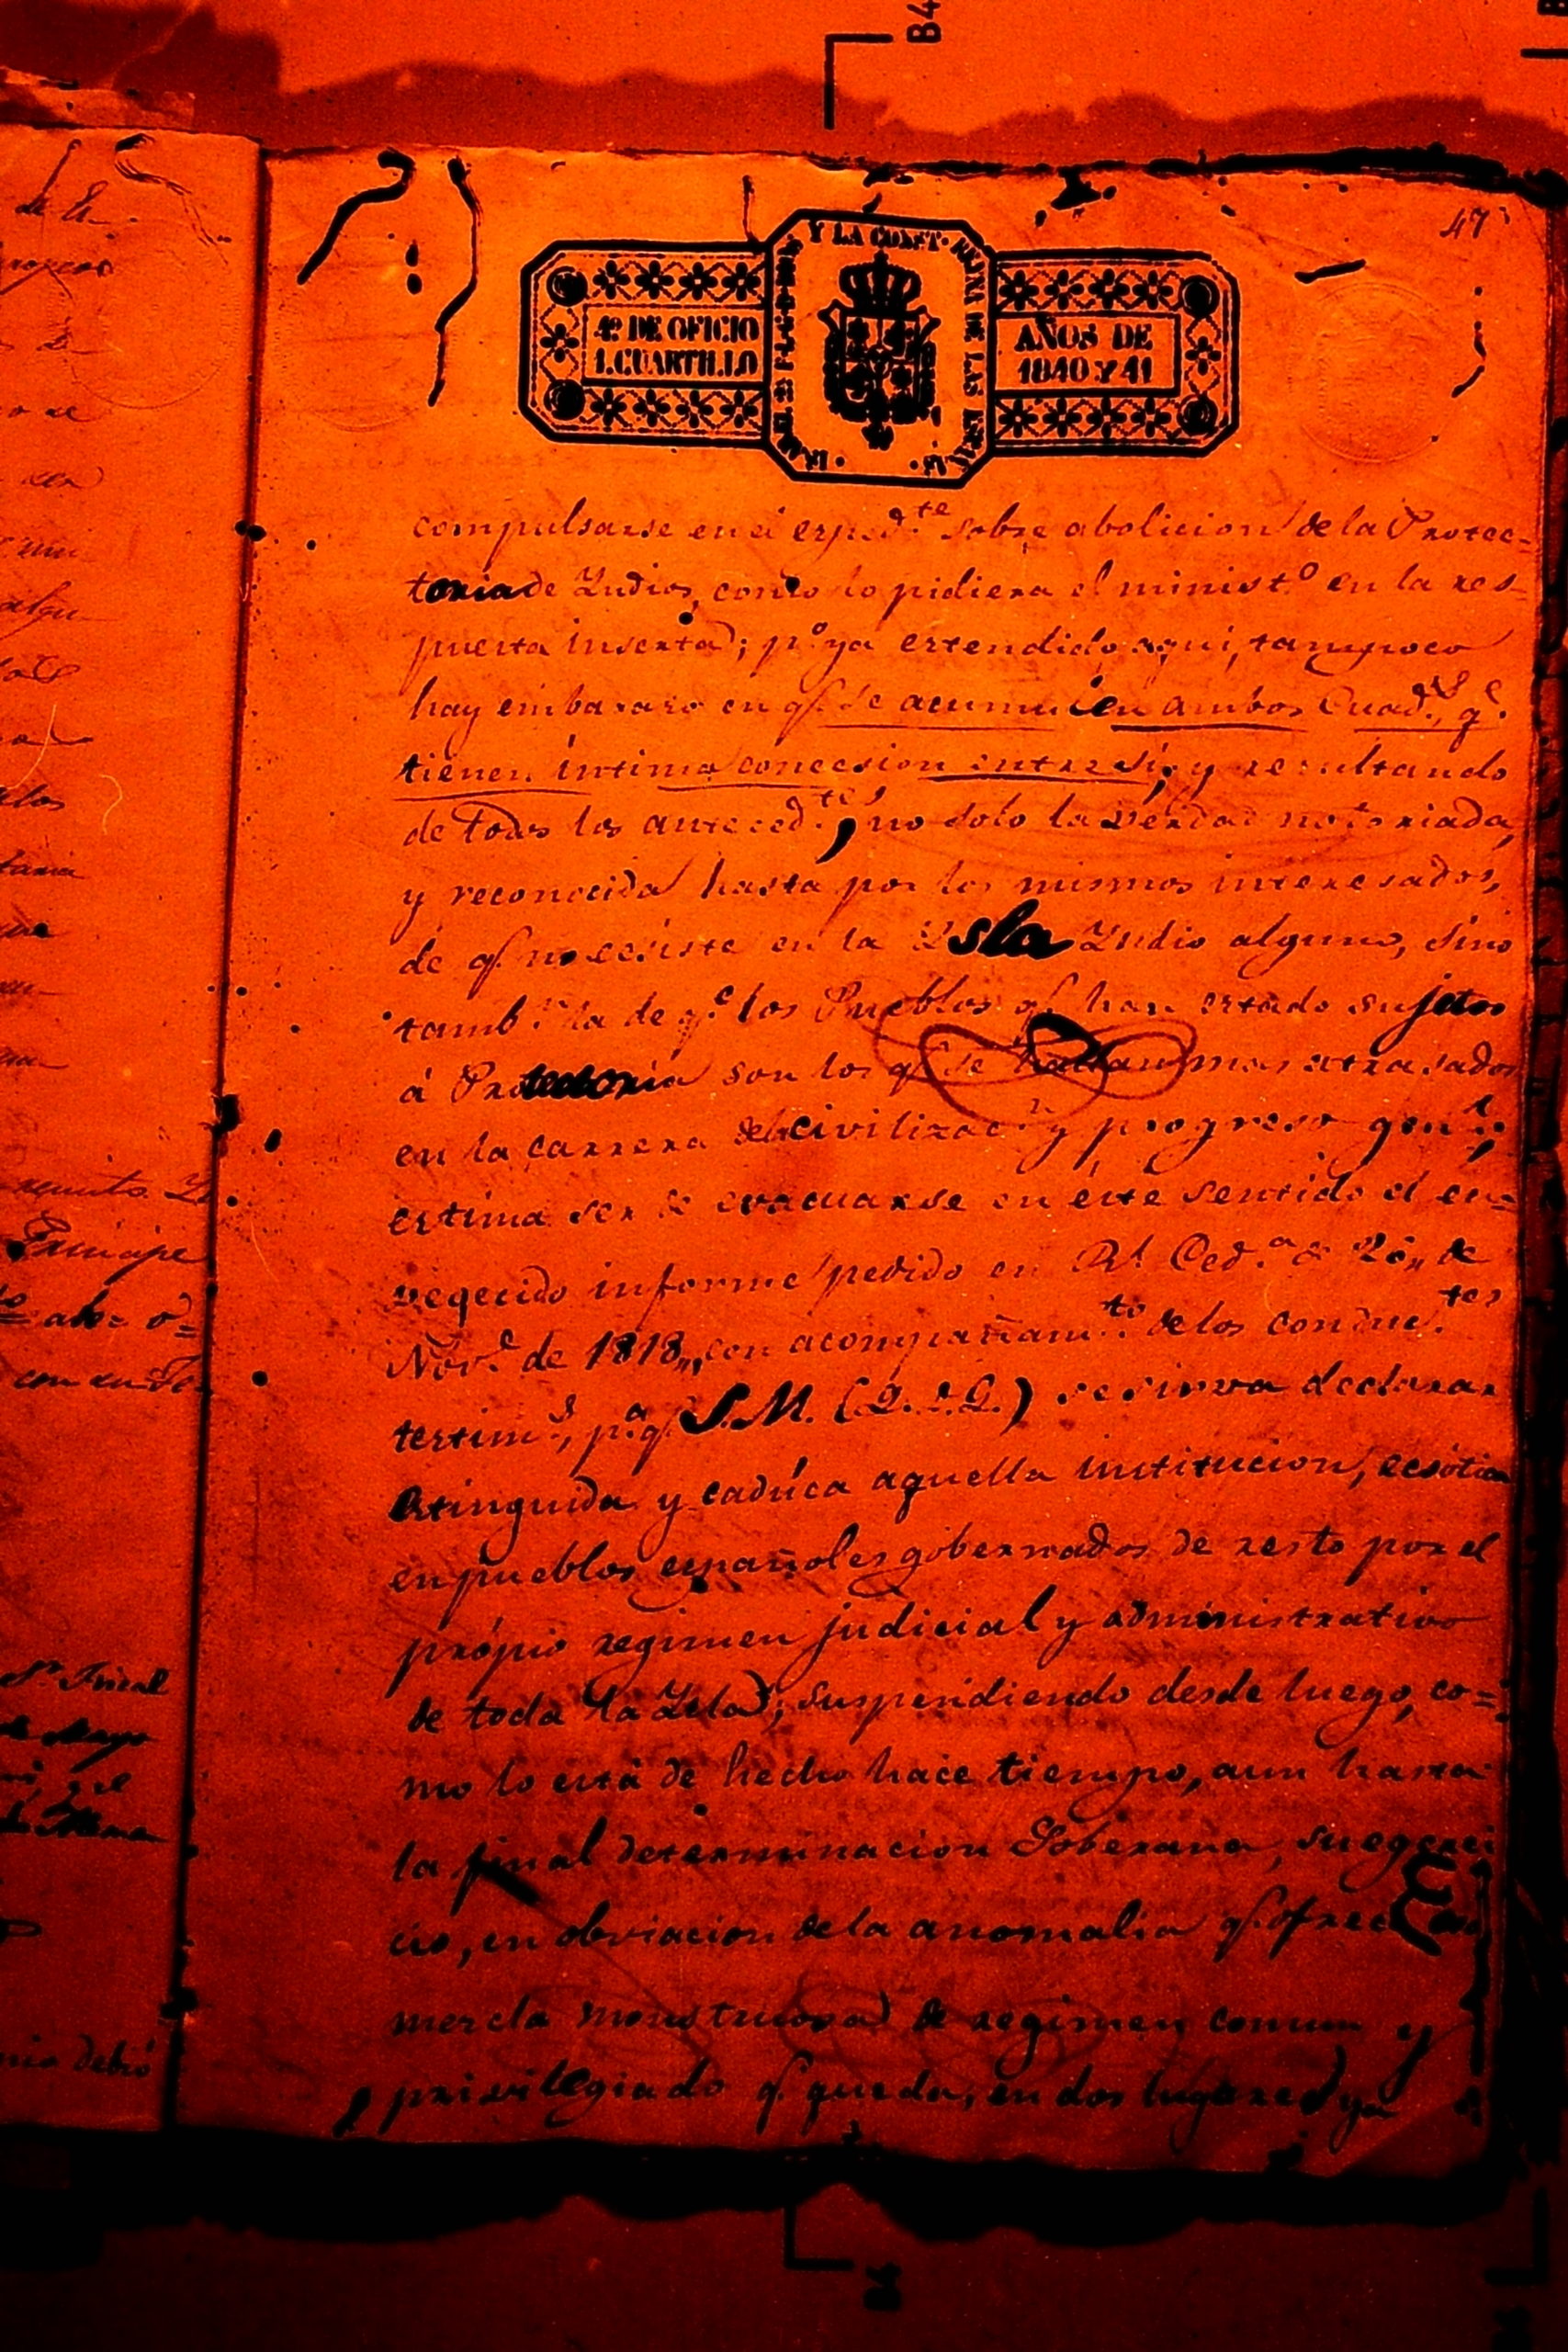 B4
47
Y LA CONST. REINA DE LAS ESPAÑAS.
4º DE OFICIO
1. CUARTILLO
AÑOS DE
1840 Y 41
compulsarse en el exped.te sobre abolicion de la Protec-
toria de Yndios, como lo pidiera el minist.º en la res-
puesta inserta; p.º ya estendido aqui, tampoco
hay embarazo en q.e se acumulen ambos Cuad.s, q.e
tienen íntima conecsion entre sí; y resultando
de todos los anteced.tes, no solo la verdad notoriada,
y reconocida hasta por los mismos interesados,
de q.e no ecsiste en la Ysla Yndio alguno, sino
tamb.n la de q.e los Pueblos q.e han estado sujetos
á Protectoria son los q.e se hallan mas atrasados
en la carrera de la civilizac.n y progreso gen.l;
estima ser de evacuarse en éste sentido el en-
vegecido informe pedido en R.l Ced.a de 25,, de
Nov.e de 1818,, con acompañam.to de los conduc.tes
testim.s, p.a q.e S.M. (Q.D.G.) se sirva declarar
estinguida y cadúca aquella institucion, ecsótica
en pueblos españoles gobernados de resto por el
própio regimen judicial y administrativo
de toda la Ysla; suspendiendo desde luego, co-
mo lo está de hecho hace tiempo, aun hasta
la final determinacion Soberana, su egerci
cio, en obviacion de la anomalia q.e ofrece
mezcla monstruosa de regimen comun y
privilegiado q.e queda, en dos lugares ya
Principe
S.r Fiscal
de Mayo
debió